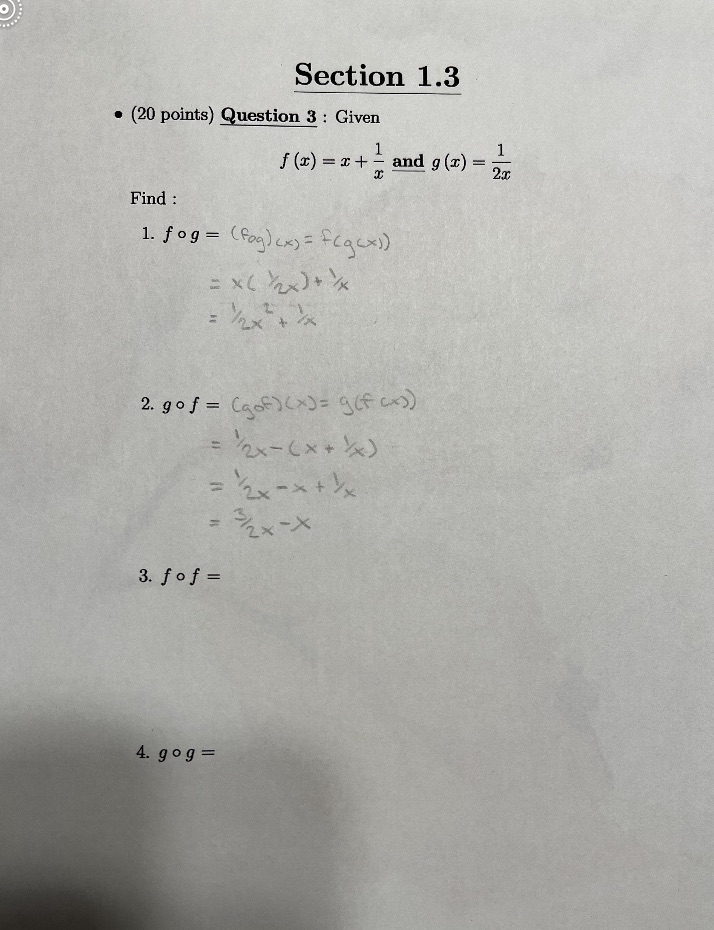 Section 1.3
• (20 points) Question 3 : Given
f (x) = x + 1/x and g (x) = 1/2x
Find :
1. f ∘ g = (fog)(x) = f(g(x))
= x( 1/2x) + 1/x
= 1/2x² + 1/x
2. g ∘ f = (gof)(x) = g(f(x))
= 1/2x - (x + 1/x)
= 1/2x - x + 1/x
= 3/2x - x
3. f ∘ f =
4. g ∘ g =